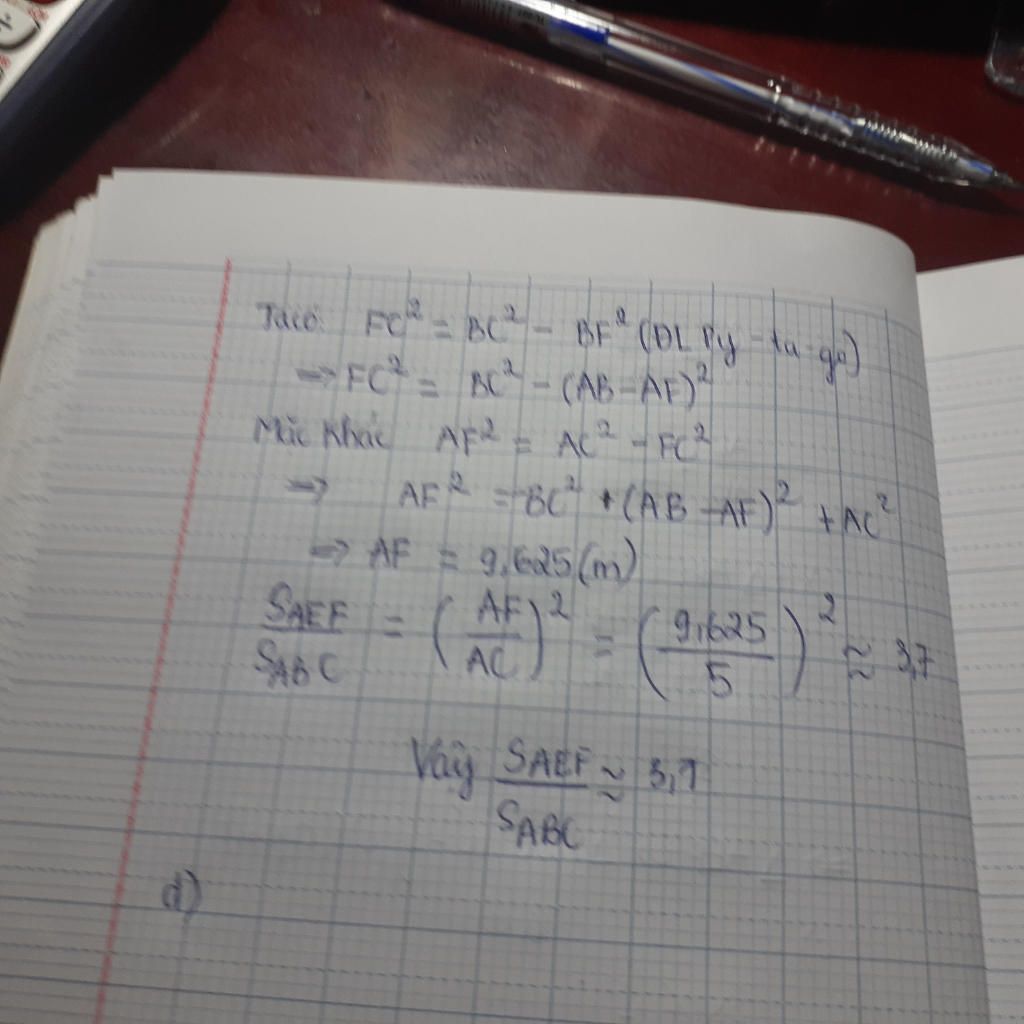 Ta có: FC² = BC² - BF² (ĐL Py-ta-go)
⇒ FC² = BC² - (AB - AF)²
Mặc Khác AF² = AC² - FC²
⇒ AF² = -BC² + (AB - AF)² + AC²
⇒ AF = 9,625 (m)
S_AEF / S_ABC = (AF / AC)² = (9,625 / 5)² ≈ 3,7
Vậy S_AEF / S_ABC ≈ 3,7
d)